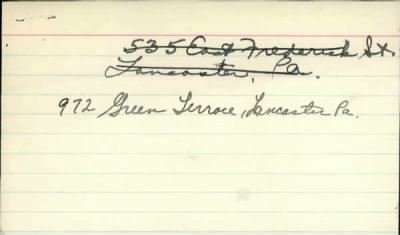 535 East Frederick St.
Lancaster, Pa.
972 Green Terrace, Lancaster Pa.